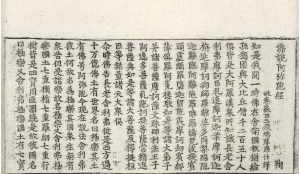 佛說阿彌陀經
姚秦三藏法師鳩摩羅什譯
如是我聞一時佛在舍衛國祇樹給
孤獨園與大比丘僧千二百五十人
俱皆是大阿羅漢眾所知識長老舍
利弗摩訶目乾連摩訶迦葉摩訶迦
旃延摩訶俱絺羅離婆多周梨槃陀
迦難陀阿難陀羅睺羅憍梵波提賓
頭盧頗羅墮迦留陀夷摩訶劫賓那
薄俱羅阿㝹樓馱如是等諸大弟子
并諸菩薩摩訶薩文殊師利法王子
阿逸多菩薩乾陀訶提菩薩常精進
菩薩與如是等諸大菩薩及釋提桓
因等無量諸天大眾俱
爾時佛告長老舍利弗從是西方過
十萬億佛土有世界名曰極樂其土
有佛號阿彌陀今現在說法舍利弗
彼土何故名為極樂其國眾生無有
眾苦但受諸樂故名極樂又舍利弗
極樂國土七重欄楯七重羅網七重行
樹皆是四寶周匝圍繞是故彼國名
曰極樂又舍利弗極樂國土有七寶